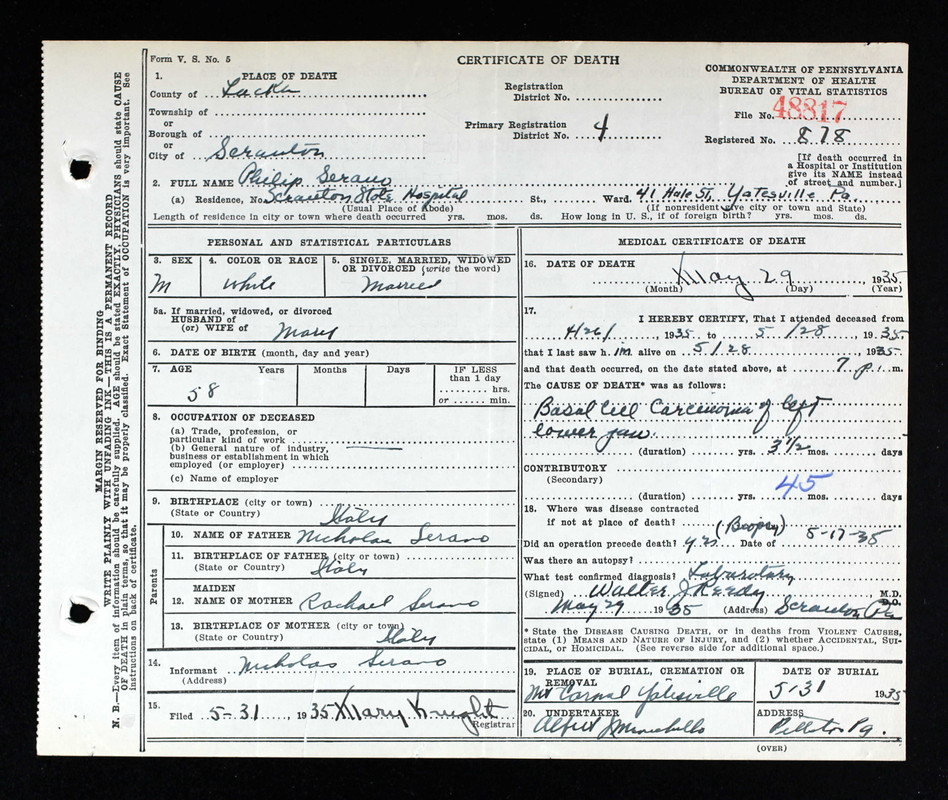 Form V. S. No. 5
CERTIFICATE OF DEATH
COMMONWEALTH OF PENNSYLVANIA
DEPARTMENT OF HEALTH
BUREAU OF VITAL STATISTICS
File No. 48817
Registered No. 878
[If death occurred in
a Hospital or Institution
give its NAME instead
of street and number.]
Registration
District No.
Primary Registration
District No. 4
1. PLACE OF DEATH
County of Lacka
Township of
or
Borough of
or
City of Scranton
2. FULL NAME Philip Serano
(a) Residence, No. Scranton State Hospital St., Ward. 41 Hale St, Yatesville Pa.
(Usual Place of Abode) (If nonresident give city or town and State)
Length of residence in city or town where death occurred yrs. mos. ds. How long in U. S., if of foreign birth? yrs. mos. ds.
PERSONAL AND STATISTICAL PARTICULARS
3. SEX 4. COLOR OR RACE 5. SINGLE, MARRIED, WIDOWED
OR DIVORCED (write the word)
M White Married
5a. If married, widowed, or divorced
HUSBAND of
(or) WIFE of Mary
6. DATE OF BIRTH (month, day and year)
7. AGE Years Months Days IF LESS
than 1 day
hrs.
or min.
58
8. OCCUPATION OF DECEASED
(a) Trade, profession, or
particular kind of work
(b) General nature of industry,
business or establishment in which
employed (or employer)
(c) Name of employer
9. BIRTHPLACE (city or town)
(State or Country) Italy
Parents
10. NAME OF FATHER Nicholas Serano
11. BIRTHPLACE OF FATHER (city or town)
(State or Country) Italy
MAIDEN
12. NAME OF MOTHER Rachael Serano
13. BIRTHPLACE OF MOTHER (city or town)
(State or Country) Italy
14.
Informant Nicholas Serano
(Address)
15.
Filed 5-31, 1935 Mary Knight
Registrar
MEDICAL CERTIFICATE OF DEATH
16. DATE OF DEATH
May 29 1935
(Month) (Day) (Year)
17.
I HEREBY CERTIFY, That I attended deceased from
4/26/, 1935 to 5/28, 1935
that I last saw h im alive on 5/28, 1935
and that death occurred, on the date stated above, at 7 p. m.
The CAUSE OF DEATH* was as follows:
Basal Cell Carcinoma of left
lower jaw.
(duration) yrs. 3 1/2 mos. days
CONTRIBUTORY
(Secondary)
45
(duration) yrs. mos. days
18. Where was disease contracted
if not at place of death?
(Biopsy)
Did an operation precede death? yes Date of 5-17-35
Was there an autopsy?
What test confirmed diagnosis? Laboratory
(Signed) Walter J Reedy M.D.
D.O.
May 29 1935 (Address) Scranton Pa
* State the DISEASE CAUSING DEATH, or in deaths from VIOLENT CAUSES,
state (1) MEANS AND NATURE OF INJURY, and (2) whether ACCIDENTAL, SUI-
CIDAL, or HOMICIDAL. (See reverse side for additional space.)
19. PLACE OF BURIAL, CREMATION OR
REMOVAL
Mt Carmel Yatesville
DATE OF BURIAL
5-31 1935
20. UNDERTAKER
Alfred J
ADDRESS
Pittston Pa.
(OVER)
MARGIN RESERVED FOR BINDING
WRITE PLAINLY WITH UNFADING INK—THIS IS A PERMANENT RECORD
N. B.—Every item of information should be carefully supplied. AGE should be stated EXACTLY. PHYSICIANS should state CAUSE
OF DEATH in plain terms, so that it may be properly classified. Exact Statement of OCCUPATION is very important. See
instructions on back of certificate.